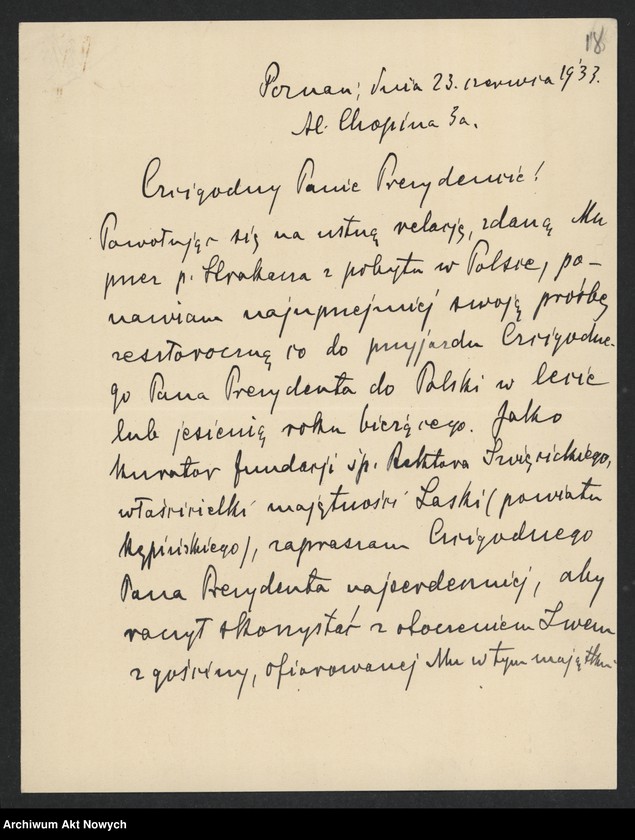 18
Poznań, dnia 23. czerwca 1933.
Al. Chopina 3a.
Czcigodny Panie Prezydencie!
Powołując się na ustną relację, zdaną Mu
przez p. Strakacza z pobytu w Polsce, po-
nawiam najuprzejmiej swoją prośbę
zeszłoroczną co do przyjazdu Czcigodne-
go Pana Prezydenta do Polski w lecie
lub jesienią roku bieżącego. Jako
kurator fundacji śp. Rektora Święcickiego,
właścicielki majętności Laski (powiatu
kępińskiego), zapraszam Czcigodnego
Pana Prezydenta najserdeczniej, aby
raczył skorzystać z otoczeniem Swem
z gościny, ofiarowanej Mu w tym majątku
Archiwum Akt Nowych